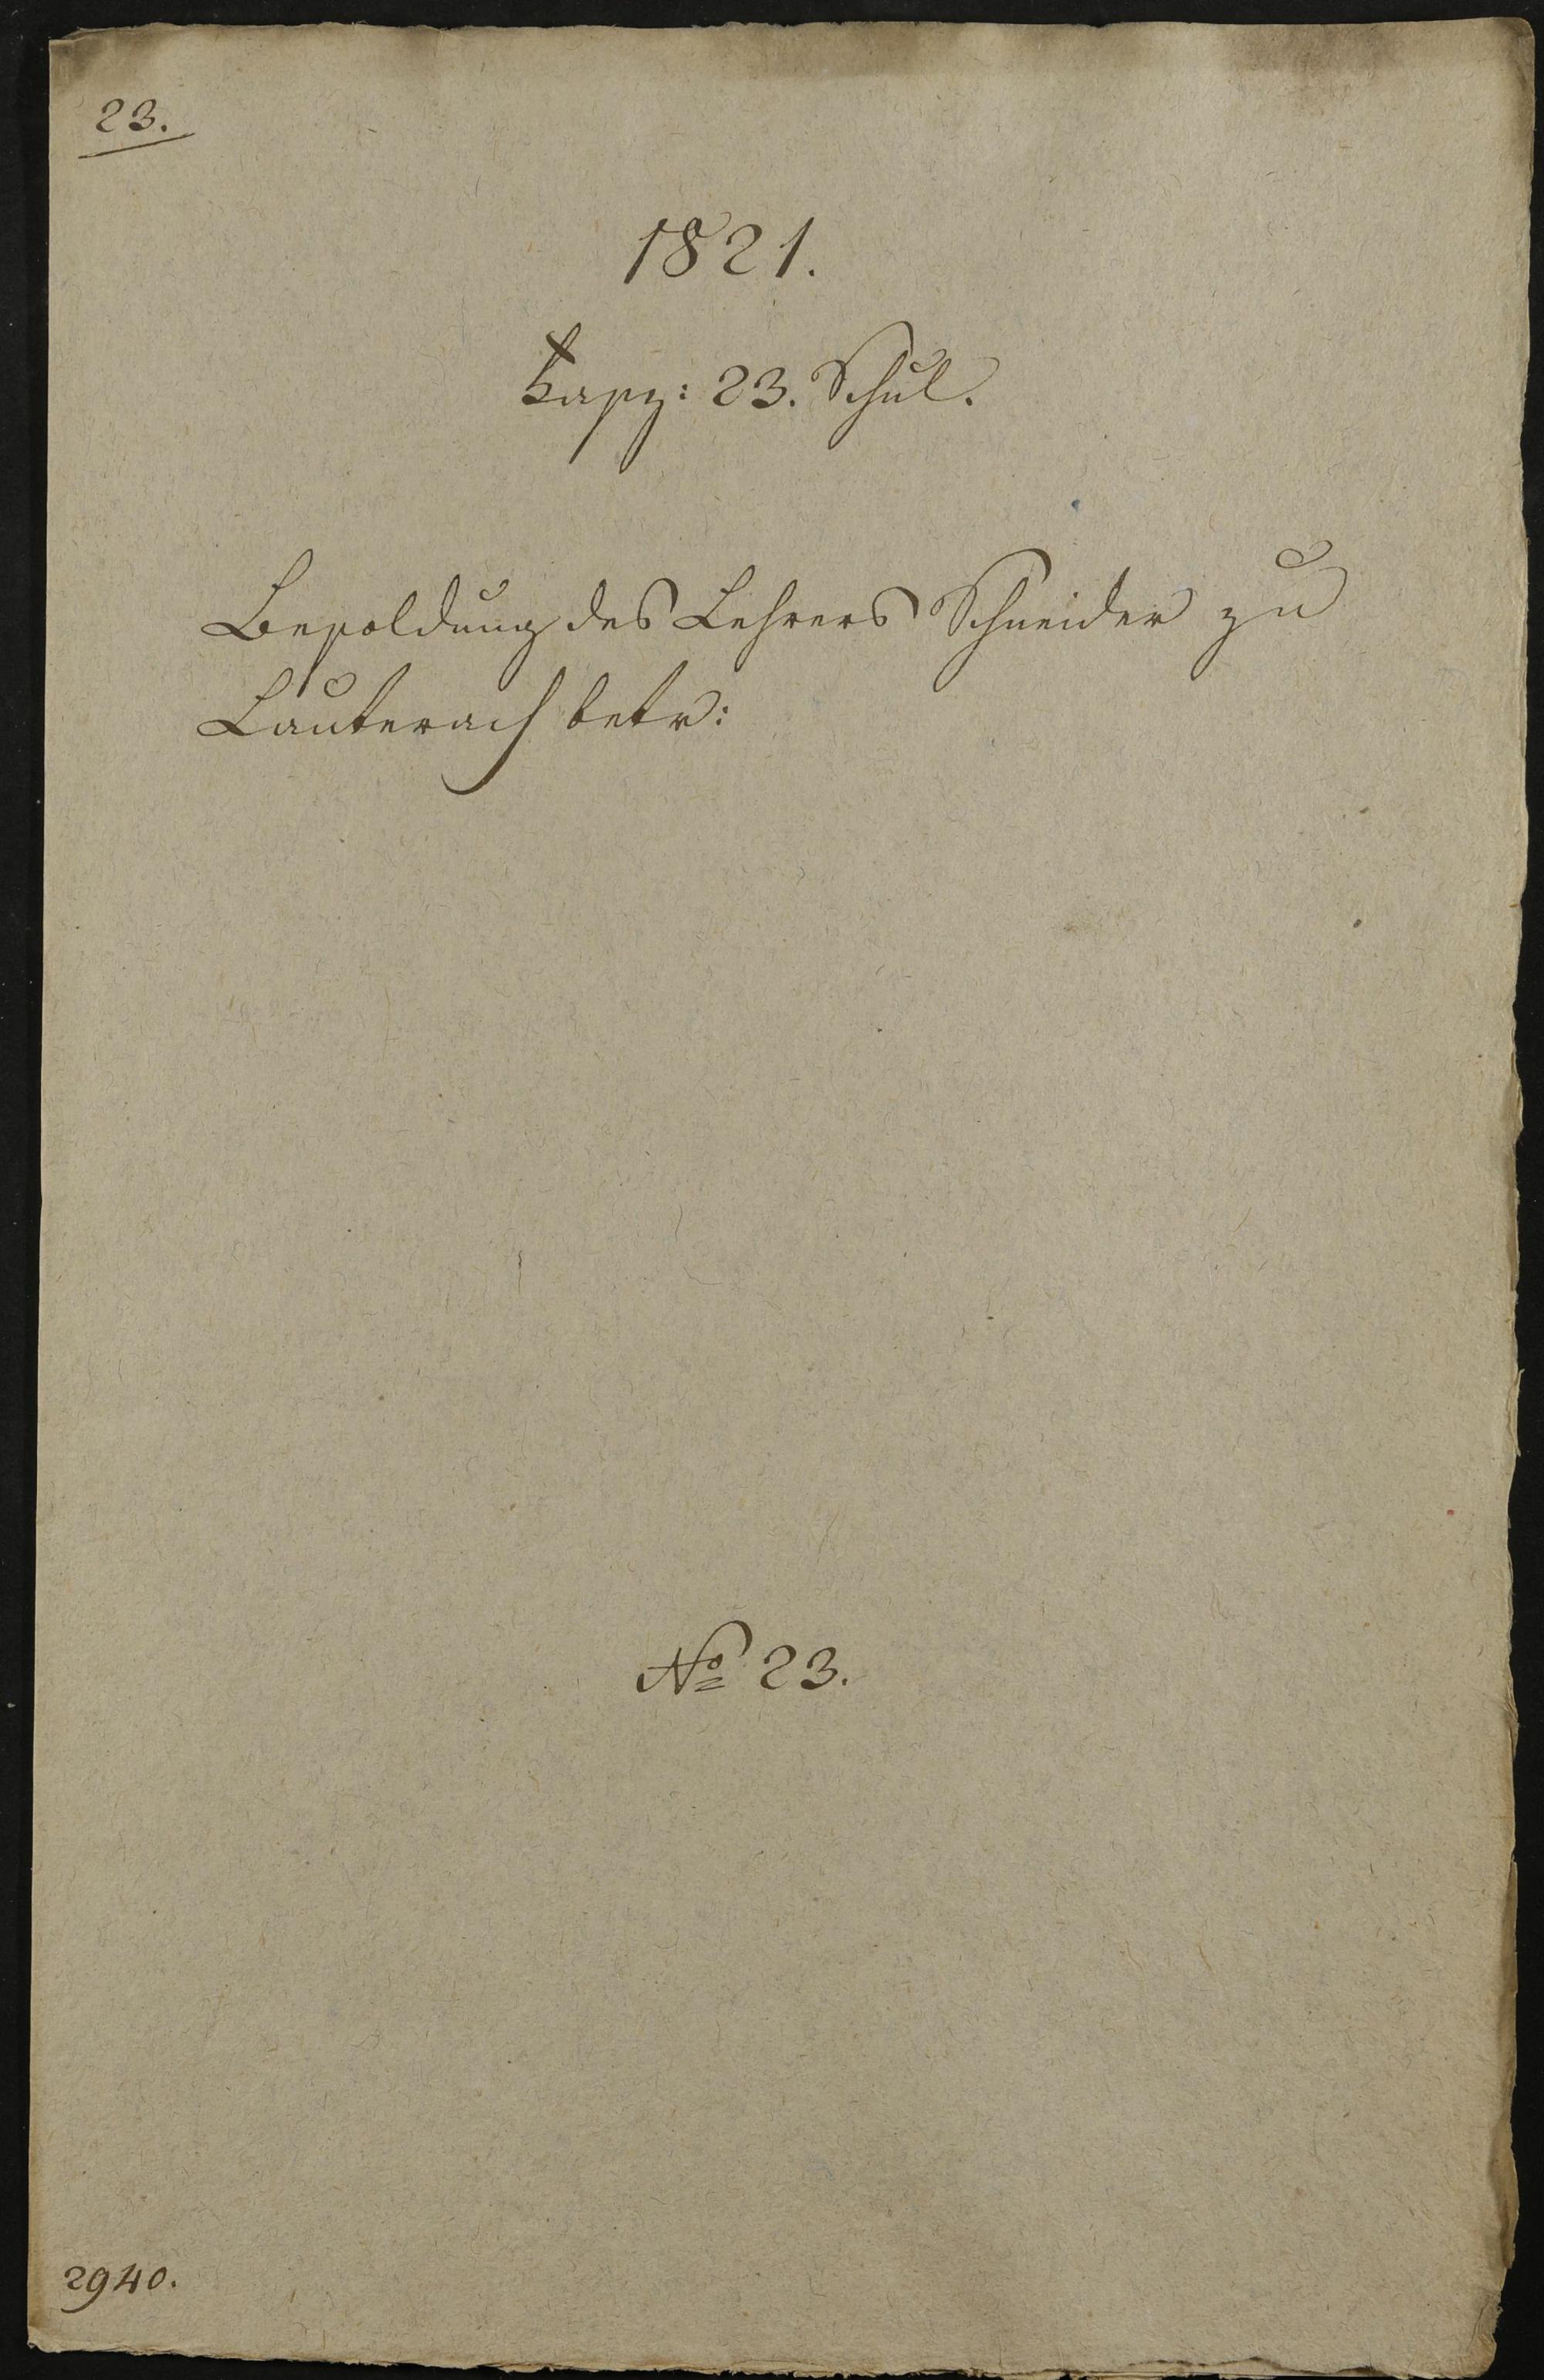 23.
1821.
Fasz: 23. Schul.
Besoldung des Lehrers Schneider zu
Lauterach betr:
No 23.
2940.